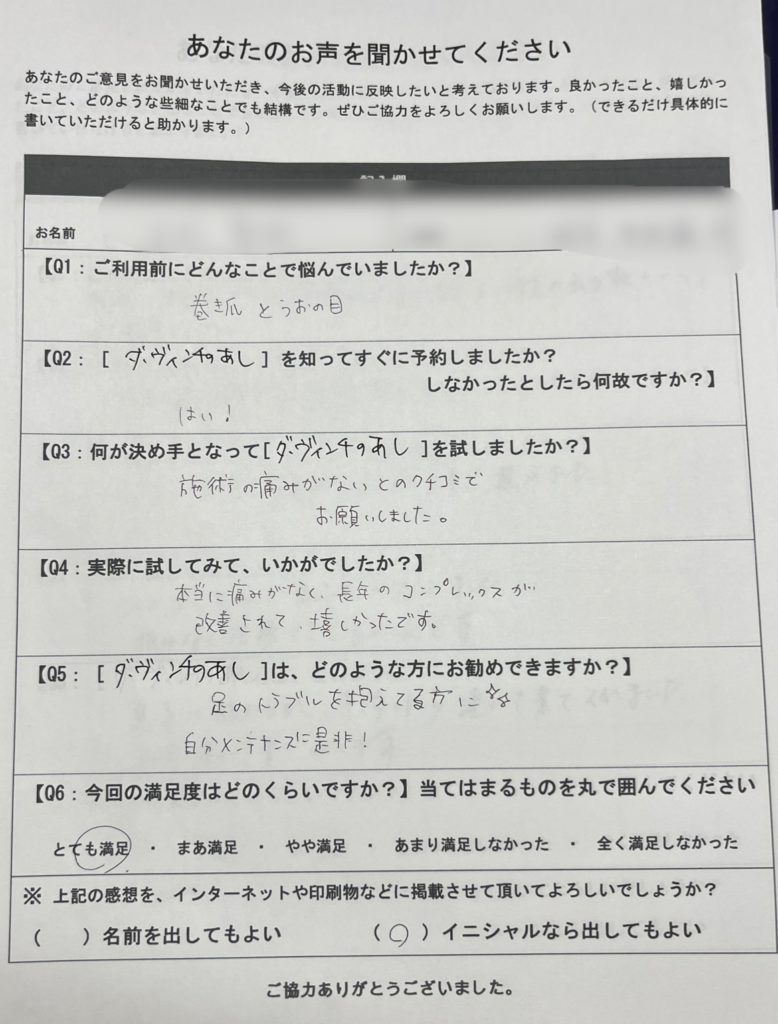 あなたのお声を聞かせてください
あなたのご意見をお聞かせいただき、今後の活動に反映したいと考えております。良かったこと、嬉しかっ
たこと、どのような些細なことでも結構です。ぜひご協力をよろしくお願いします。（できるだけ具体的に
書いていただけると助かります。）
お名前
【Q1：ご利用前にどんなことで悩んでいましたか？】
巻き爪 とうおの目
【Q2：[ ダ・ヴィンチのあし ] を知ってすぐに予約しましたか？
しなかったとしたら何故ですか？】
はい！
【Q3：何が決め手となって[ ダ・ヴィンチのあし ]を試しましたか？】
施術の痛みがないとのクチコミで
お願いしました。
【Q4：実際に試してみて、いかがでしたか？】
本当に痛みがなく、長年のコンプレックスが
改善されて、嬉しかったです。
【Q5：[ ダ・ヴィンチのあし ]は、どのような方にお勧めできますか？】
足のトラブルを抱えてる方に☆☆
自分メンテナンスに是非！
【Q6：今回の満足度はどのくらいですか？】当てはまるものを丸で囲んでください
とても満足 ・ まあ満足 ・ やや満足 ・ あまり満足しなかった ・ 全く満足しなかった
※ 上記の感想を、インターネットや印刷物などに掲載させて頂いてよろしいでしょうか？
（　　）名前を出してもよい （○）イニシャルなら出してもよい
ご協力ありがとうございました。